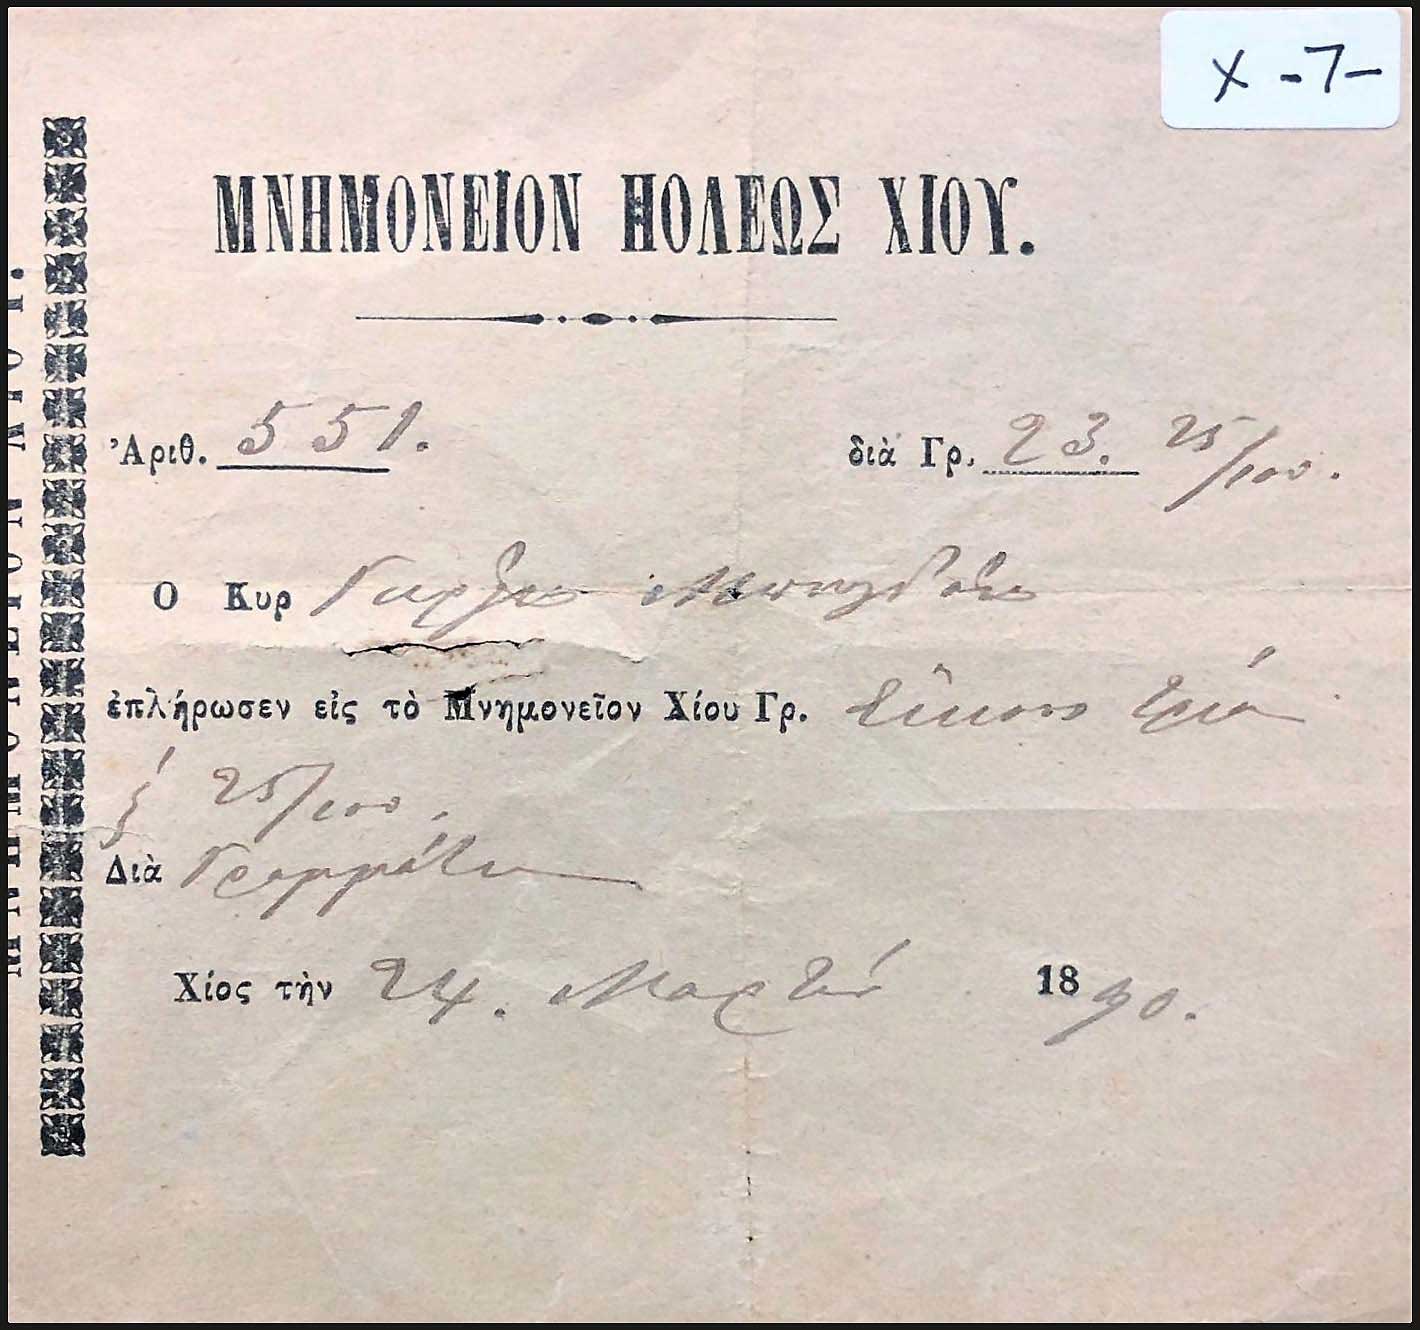 X -7-
ΜΝΗΜΟΝΕΙΟΝ ΠΟΛΕΩΣ ΧΙΟΥ.
Ἀριθ. 551. διὰ Γρ. 23. 25/100.
Ο Κυρ
ἐπλήρωσεν εἰς τὸ Μνημονεῖον Χίου Γρ. εἴκοσι τρία
25/100.
Διὰ
Χίος τὴν 24. Μαρτίου 1890.
ΜΝΗΜΟΝΕΙΟΝ ΧΙΟΥ.